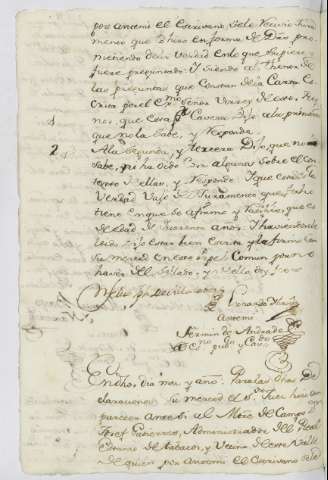 por anttemi el Escrivano se le recivio Jura
mento que hizo en forma de Dro, pro
metiendo decir verdad en lo que supiere y
fuere preguntado. Y siendo al thenor de
las preguntas que constan de la Carta Es
crita por el exmo señor Virrey de estos Rey
nos, que esta por Cavera Dijo a la primera
1 que no la save, y responde
2 A la segunda, y tercera Dijo, que no
save, ni ha oido cosa alguna sobre el con
tenido de ellas, y responde. Y que esta es la
Verdad vajo del Juramento que fecho
tiene en que se afirmo y ratifico, que es
de edad de quarenta años. Y haviendole
leido dijo estar bien escrita y la firmo con
su merced en este papel Comun por no
haverle del sellado, y de ello doy fee
Antemi
Fermin de Andrade
esno pubco y Cavdo
En dho, dia mes y año. Para las dhas De
claraciones su merced el sr Juez hizo com
parecer antte si al Mtre de Campo Dn
Josef Gutierres, Administrador de la Real
Renta de tabacos, y Vecino de este Valle
de quien por anttemi el Escrivano se le